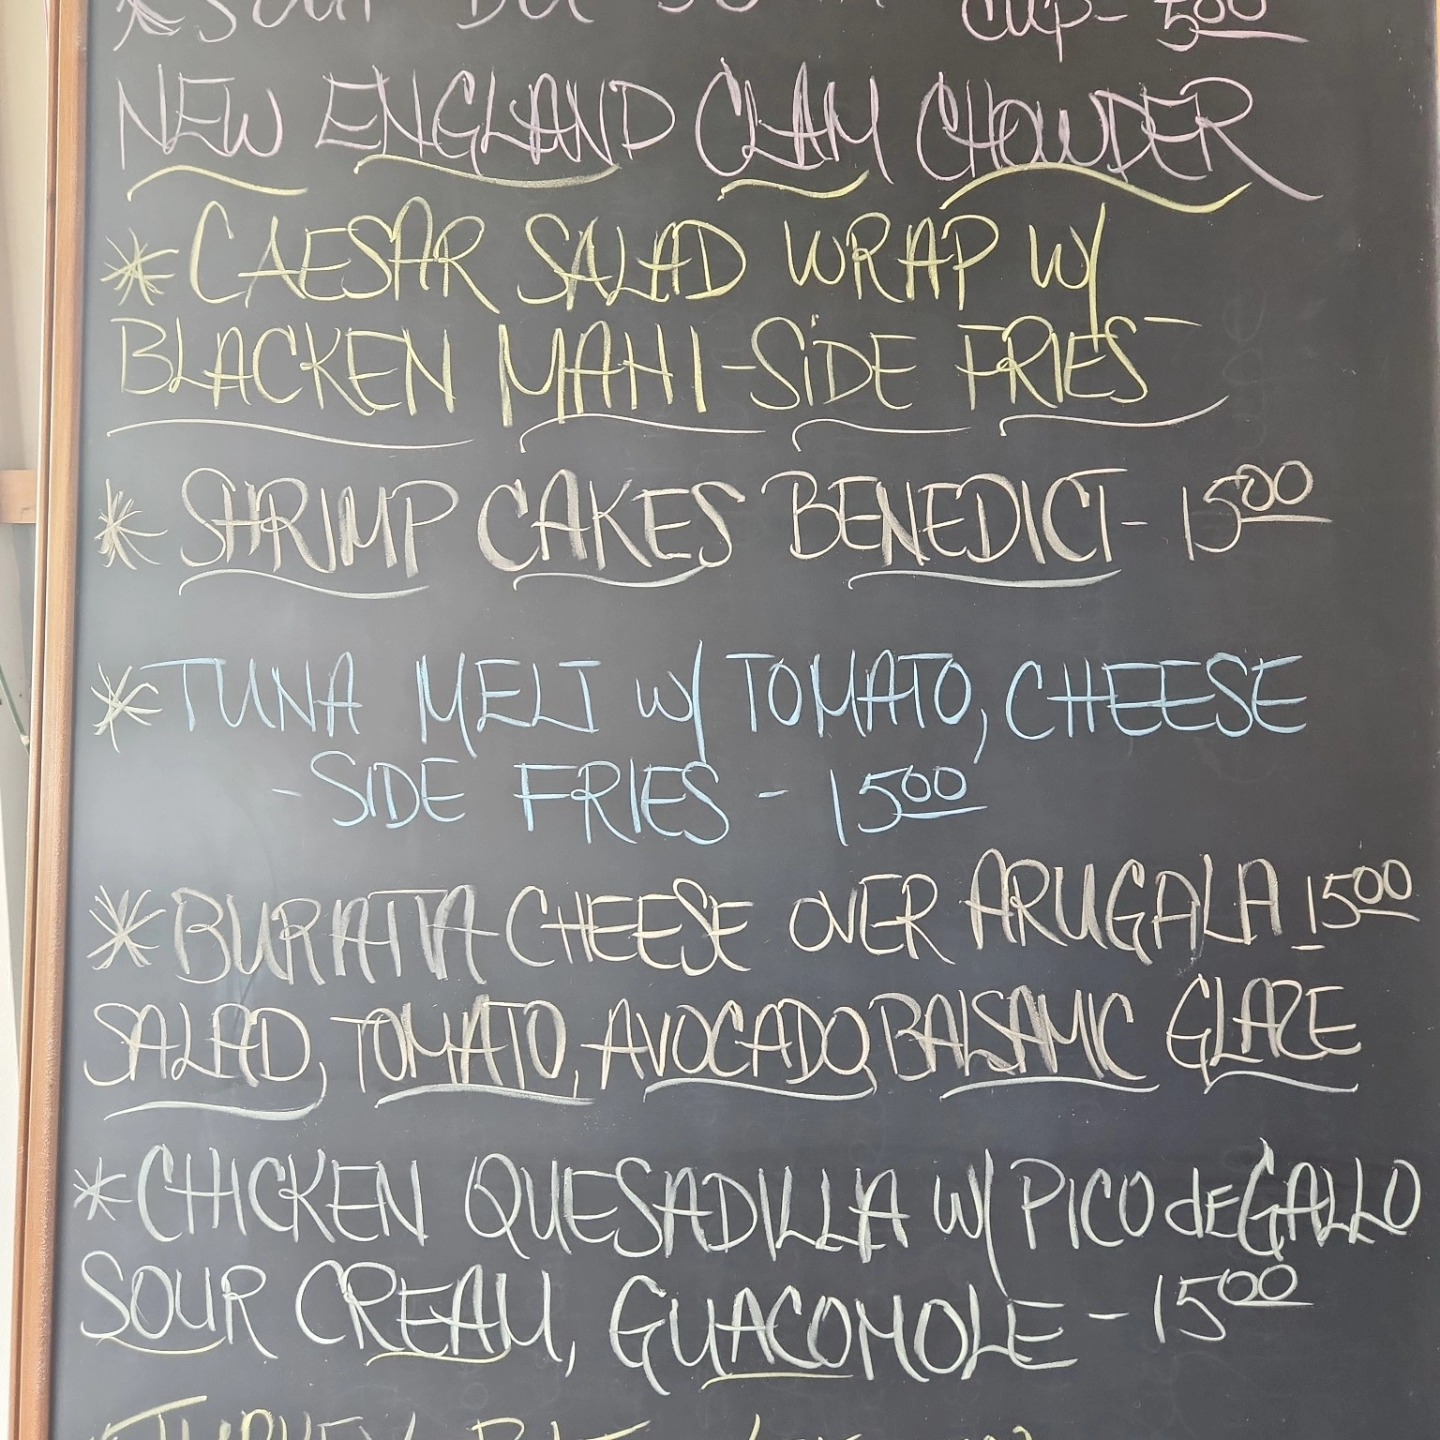 CUP- 5.00
NEW ENGLAND CLAM CHOWDER
* CAESAR SALAD WRAP W/
BLACKEN MAHI-SIDE FRIES -
* SHRIMP CAKES BENEDICT- 15.00
* TUNA MELT W/ TOMATO, CHEESE
- SIDE FRIES - 15.00
* BURATTA CHEESE OVER ARUGALA 15.00
SALAD, TOMATO, AVOCADO, BALSAMIC GLAZE
* CHICKEN QUESADILLA W/ PICO deGALLO
SOUR CREAM, GUACOMOLE - 15.00
* TURKEY